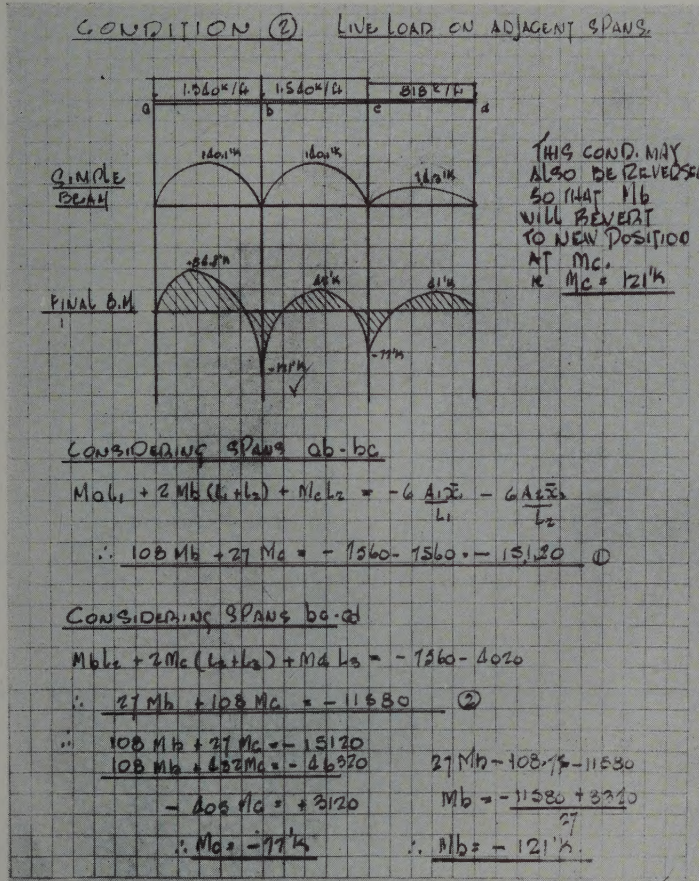 CONDITION ② LIVE LOAD ON ADJACENT SPANS.
1.540K/ft 1.540K/ft .818K/ft
a b c d
SIMPLE
BEAM
140.1'K 140.1'K
THIS COND. MAY
ALSO BE REVERSED
SO THAT Mb
WILL REVERT
TO NEW POSITION
AT Mc.
Mc = 121'K
FINAL B.M
41'K
-121'K
-77'K
CONSIDERING SPANS ab-bc
MaL₁ + 2Mb(L₁+L₂) + McL₂ = -6 A₁x̄₁/L₁ - 6 A₂x̄₂/L₂
∴ 108 Mb + 27 Mc = - 7560 - 7560 = - 15120 ①
CONSIDERING SPANS bc-cd
MbL₂ + 2Mc(L₂+L₃) + MdL₃ = - 7560 - 4020
∴ 27 Mb + 108 Mc = - 11580 ②
∴ 108 Mb + 27 Mc = - 15120
108 Mb + 432 Mc = - 46320
27 Mb - 108.77 = 11580
- 405 Mc = + 3120
Mb = -11580 + 8320
27
∴ Mc = -77'K
∴ Mb = - 121'K.